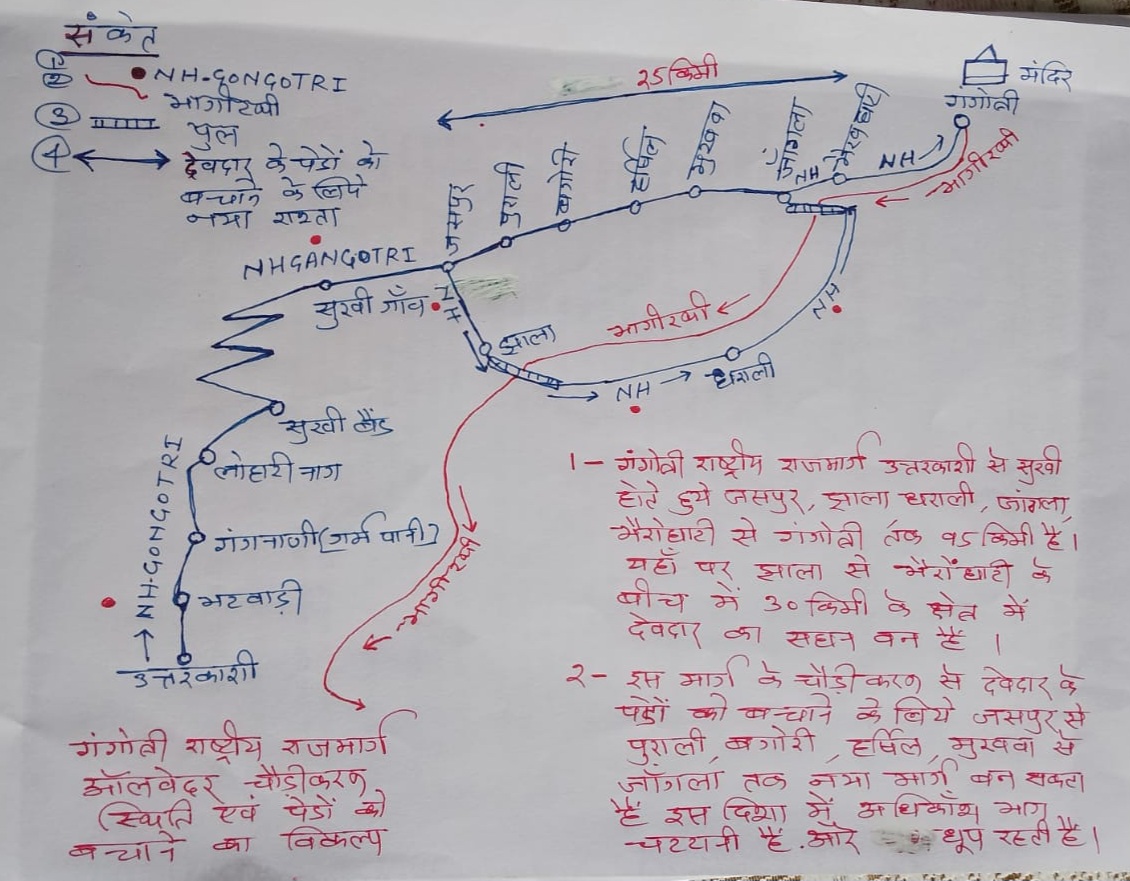 संकेत
① NH-GONGOTRI
② भागीरथी
③ पुल
④ देवदार के पेड़ों को
बचाने के लिये
नया रास्ता
२५ किमी
मंदिर
गंगोत्री
जसपुर
पुराली
बगोरी
हर्षिल
मुखवा
जांगला
भैरोंघाटी
NH
NH
भागीरथी
NHGANGOTRI
सुखी गाँव
NH
झाला
भागीरथी
NH
धराली
NH
सुखी बैंड
लोहारी नाग
गंगनाणी (गर्म पानी)
भटवाड़ी
उत्तरकाशी
NH-GONGOTRI
भागीरथी
गंगोत्री राष्ट्रीय राजमार्ग
ऑलवेदर चौड़ीकरण
(स्थिति एवं पेड़ों को
बचाने का विकल्प
1- गंगोत्री राष्ट्रीय राजमार्ग उत्तरकाशी से सुखी
होते हुये जसपुर, झाला धराली, जांगला,
भैरोघाटी से गंगोत्री तक ९५ किमी है।
यहाँ पर झाला से भैरोंघाटी के
बीच में ३० किमी के क्षेत्र में
देवदार का सघन वन है ।
२- इस मार्ग के चौड़ीकरण से देवदार के
पेड़ों को बचाने के लिये जसपुर से
पुराली बगोरी, हर्षिल, मुखवा से
जाँगला तक नया मार्ग बन सकता
है इस दिशा में अधिकाँश भाग
चट्टानी है. और धूप रहती है।